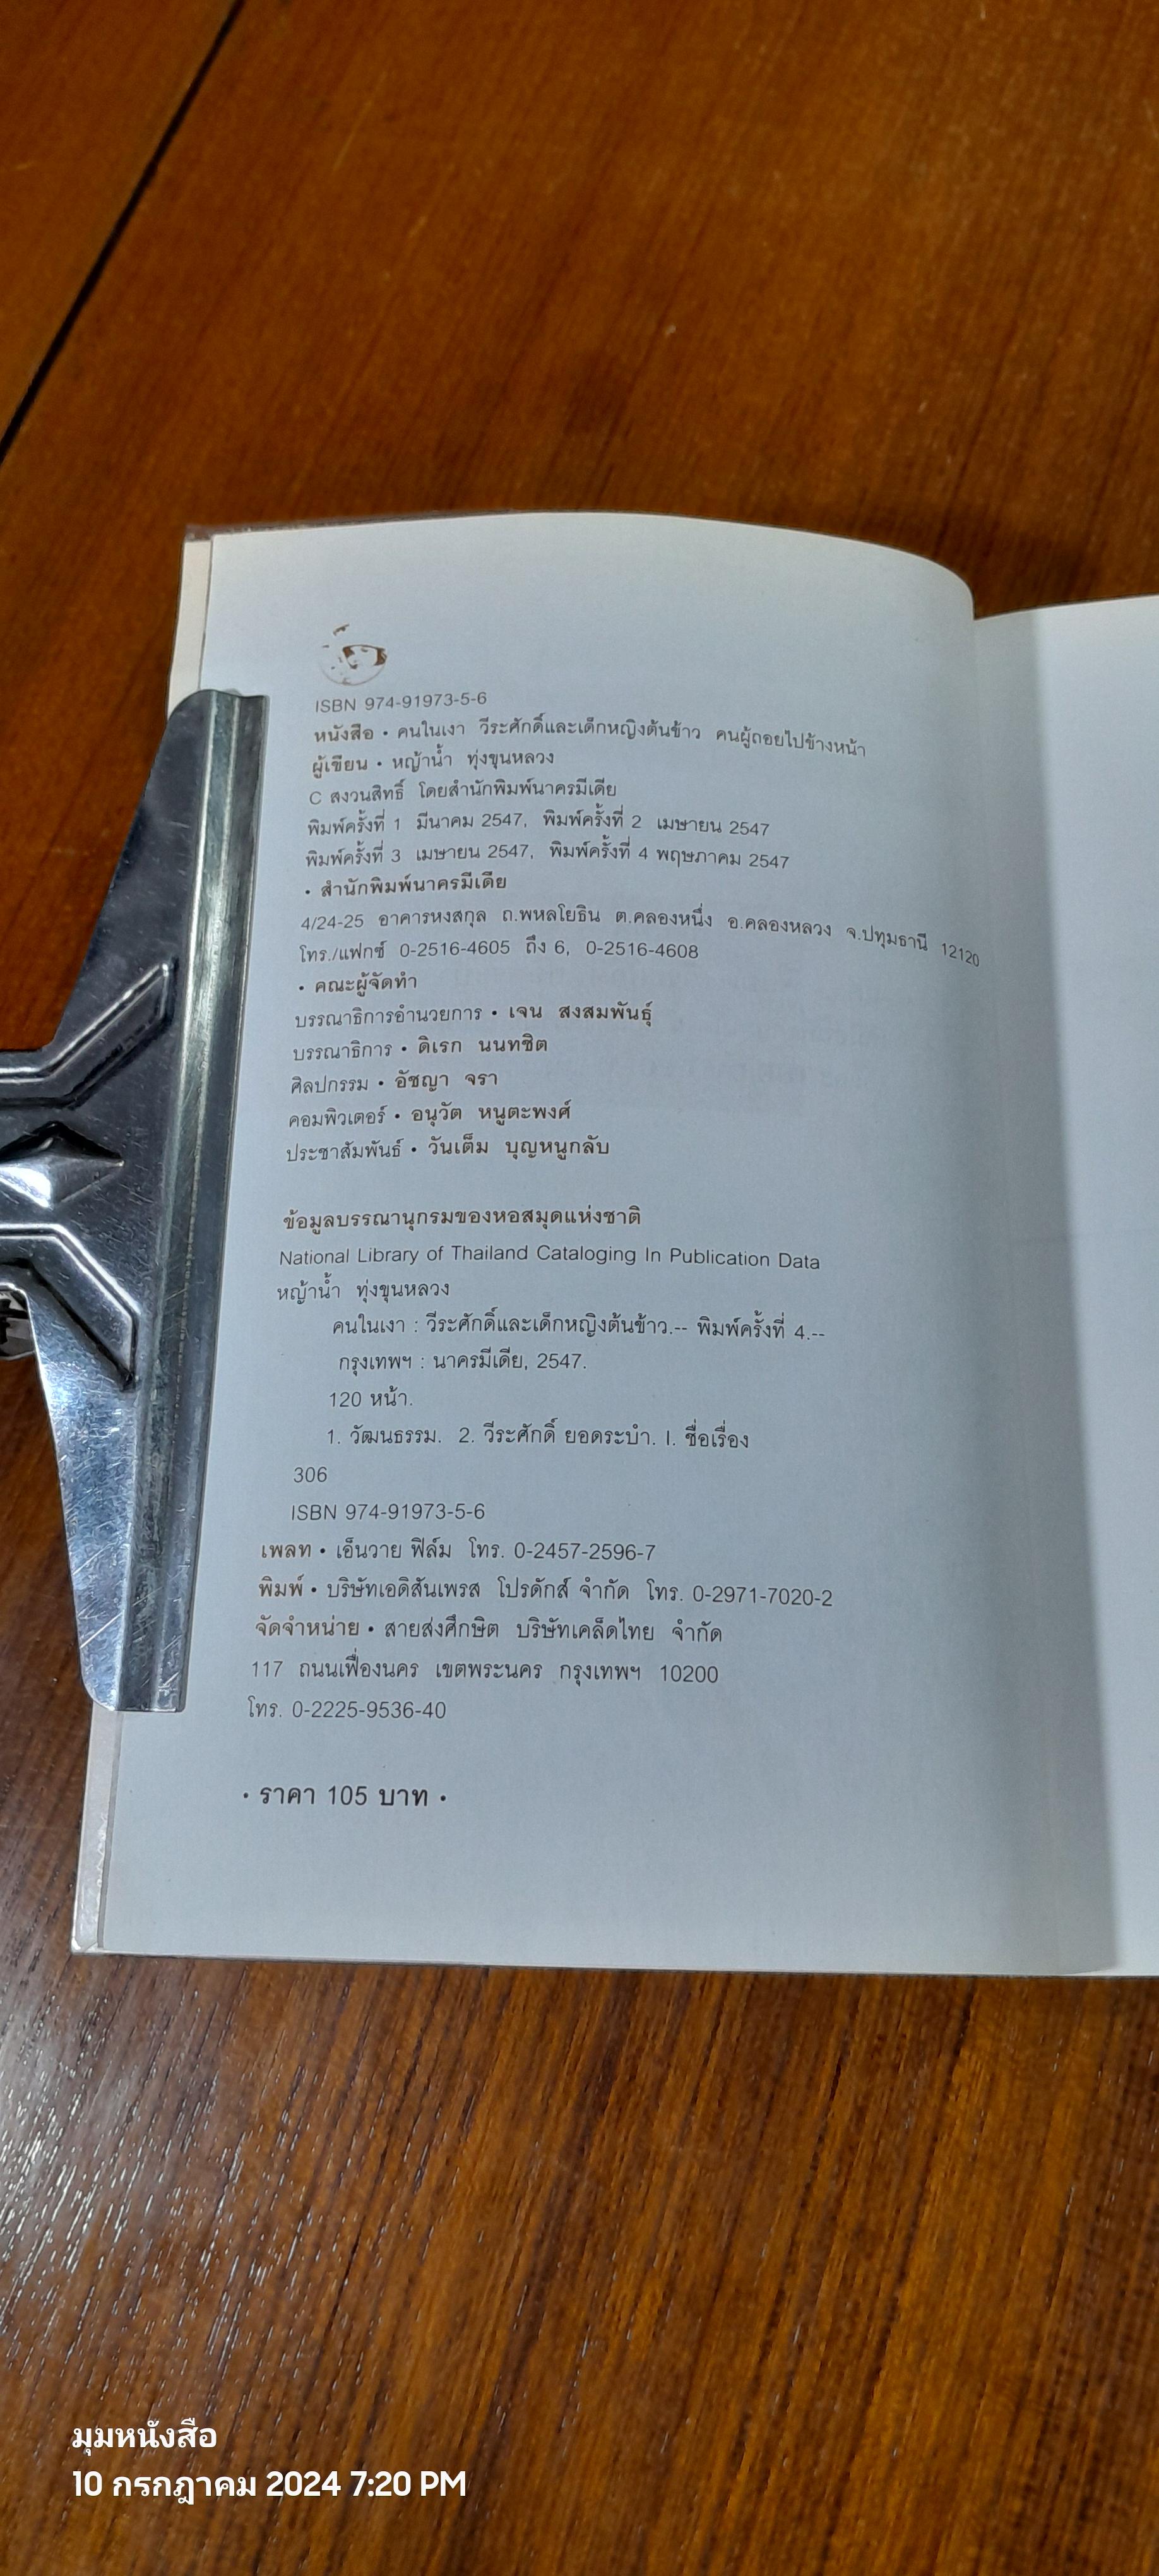 ISBN 974-91973-5-6
หนังสือ • คนในเงา วีระศักดิ์และเด็กหญิงต้นข้าว คนผู้ถอยไปข้างหน้า
ผู้เขียน • หญ้าน้ำ ทุ่งขุนหลวง
C สงวนสิทธิ์ โดยสำนักพิมพ์นาครมีเดีย
พิมพ์ครั้งที่ 1 มีนาคม 2547, พิมพ์ครั้งที่ 2 เมษายน 2547
พิมพ์ครั้งที่ 3 เมษายน 2547, พิมพ์ครั้งที่ 4 พฤษภาคม 2547
• สำนักพิมพ์นาครมีเดีย
4/24-25 อาคารหงสกุล ถ.พหลโยธิน ต.คลองหนึ่ง อ.คลองหลวง จ.ปทุมธานี 12120
โทร./แฟกซ์ 0-2516-4605 ถึง 6, 0-2516-4608
• คณะผู้จัดทำ
บรรณาธิการอำนวยการ • เจน สงสมพันธุ์
บรรณาธิการ • ดิเรก นนทชิต
ศิลปกรรม • อัชญา จรา
คอมพิวเตอร์ • อนุวัต หนูตะพงศ์
ประชาสัมพันธ์ • วันเต็ม บุญหนูกลับ
ข้อมูลบรรณานุกรมของหอสมุดแห่งชาติ
National Library of Thailand Cataloging In Publication Data
หญ้าน้ำ ทุ่งขุนหลวง
คนในเงา : วีระศักดิ์และเด็กหญิงต้นข้าว.-- พิมพ์ครั้งที่ 4.--
กรุงเทพฯ : นาครมีเดีย, 2547.
120 หน้า.
1. วัฒนธรรม. 2. วีระศักดิ์ ยอดระบำ. I. ชื่อเรื่อง
306
ISBN 974-91973-5-6
เพลท • เอ็นวาย ฟิล์ม โทร. 0-2457-2596-7
พิมพ์ • บริษัทเอดิสันเพรส โปรดักส์ จำกัด โทร. 0-2971-7020-2
จัดจำหน่าย • สายส่งศึกษิต บริษัทเคล็ดไทย จำกัด
117 ถนนเฟื่องนคร เขตพระนคร กรุงเทพฯ 10200
โทร. 0-2225-9536-40
• ราคา 105 บาท •
มุมหนังสือ
10 กรกฎาคม 2024 7:20 PM